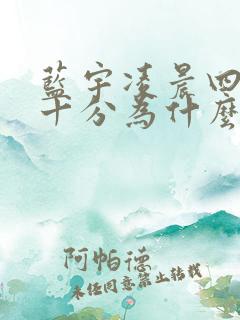 藍宇凌晨四
十分為什麼
阿帕德
未经同意禁止转载